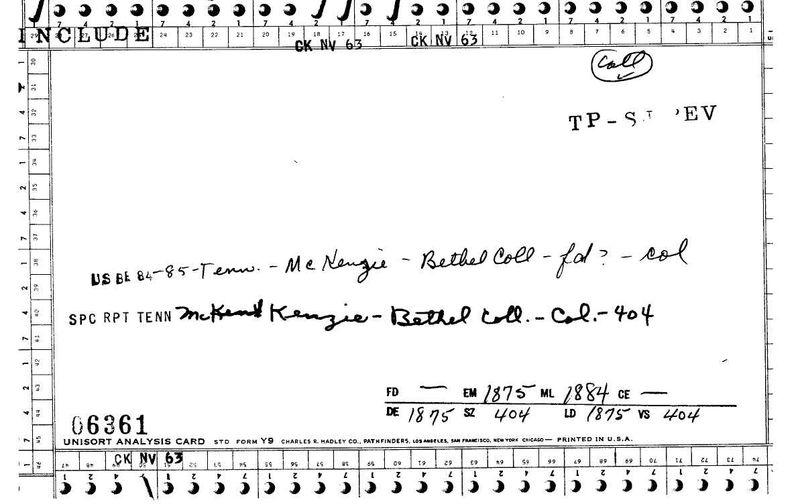 INCLUDE
CK NV 63 CK NV 63
Coll
TP-
US BE 84-85-Tenn. - McKenzie - Bethel Coll - fd? - col
SPC RPT TENN Kenzie - Bethel Coll. - Col. - 404
FD — EM 1875 ML 1884 CE —
DE 1875 SZ 404 LD 1875 VS 404
06361
UNISORT ANALYSIS CARD STD FORM Y9 CHARLES R. HADLEY CO., PATHFINDERS, LOS ANGELES, SAN FRANCISCO, NEW YORK CHICAGO — PRINTED IN U.S.A.
CK NV 63